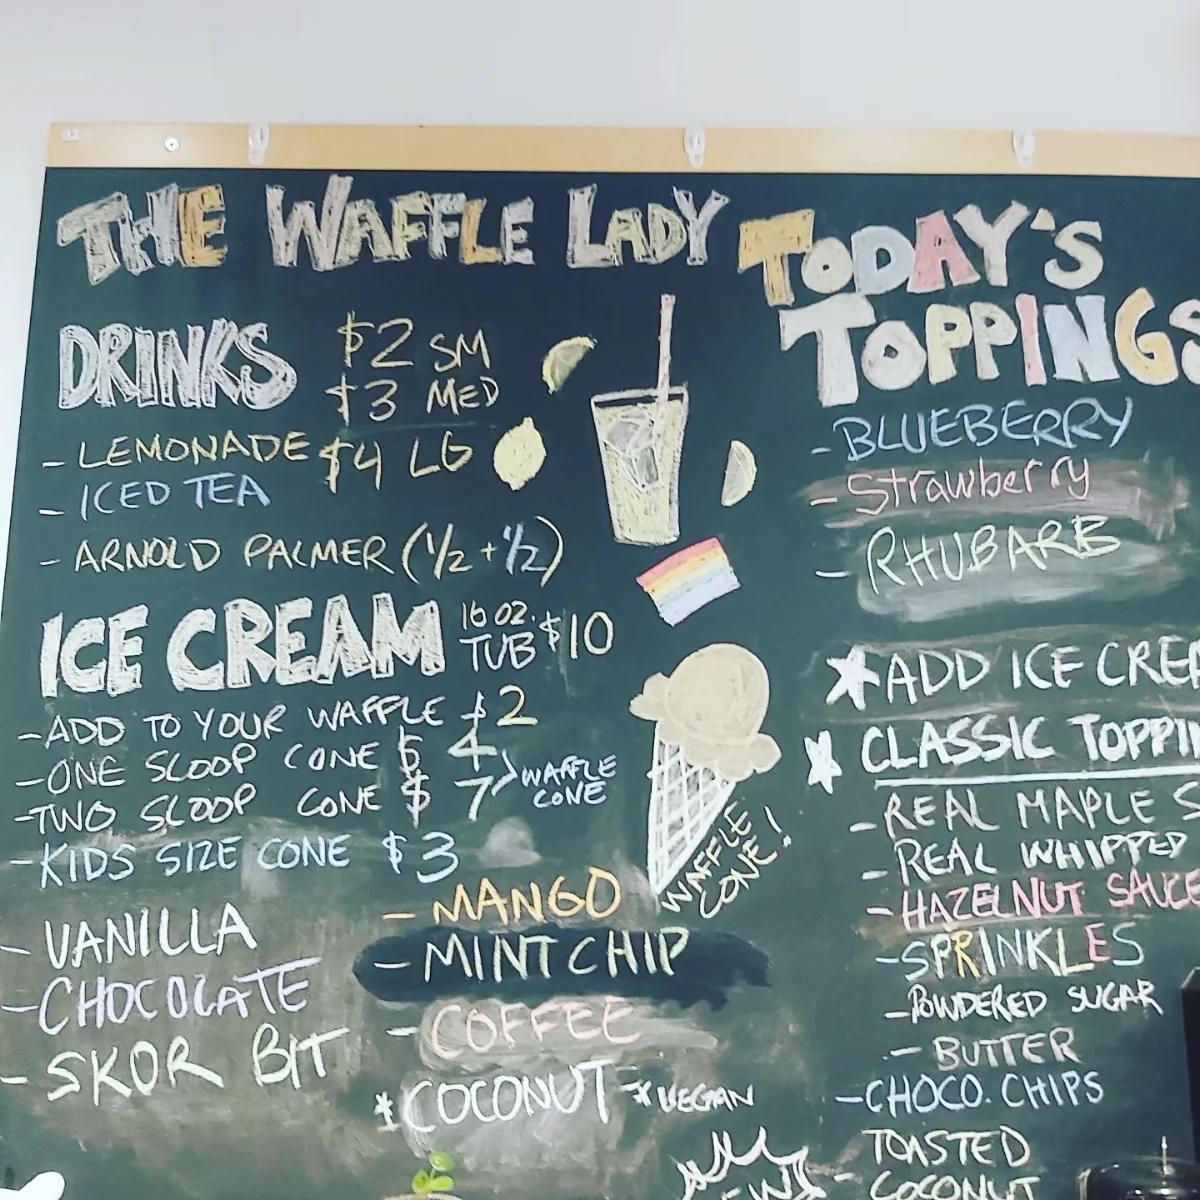 THE WAFFLE LADY
DRINKS
$2 SM
$3 MED
$4 LG
- LEMONADE
- ICED TEA
- ARNOLD PALMER (1/2 + 1/2)
ICE CREAM 16 OZ. TUB $10
- ADD TO YOUR WAFFLE $2
- ONE SCOOP CONE $ 4
- TWO SCOOP CONE $ 7
WAFFLE
CONE
- KIDS SIZE CONE $3
WAFFLE
CONE!
- VANILLA
- CHOCOLATE
- SKOR BIT
- MANGO
- MINT CHIP
- COFFEE
* COCONUT * VEGAN
TODAY'S
TOPPINGS
- BLUEBERRY
- Strawberry
- RHUBARB
ADD ICE CREA
CLASSIC TOPPIN
- REAL MAPLE S
- REAL WHIPPED
- HAZELNUT SAUCE
- SPRINKLES
- POWDERED SUGAR
- BUTTER
- CHOCO. CHIPS
- TOASTED
COCONUT